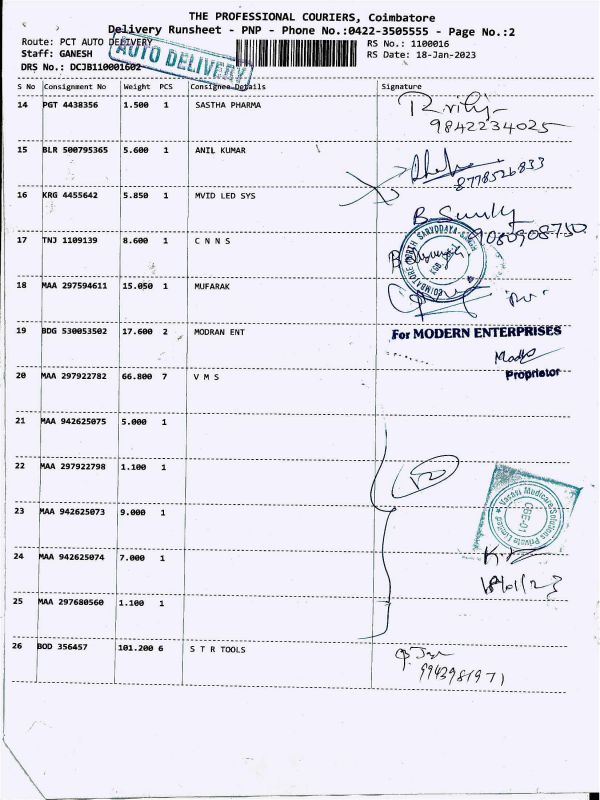 THE PROFESSIONAL COURIERS, Coimbatore
Delivery Runsheet - PNP - Phone No.:0422-3505555 - Page No.:2
Route: PCT AUTO DELIVERY RS No.: 1100016
Staff: GANESH RS Date: 18-Jan-2023
DRS No.: DCJB110001602
AUTO DELIVERY
S No Consignment No Weight PCS Consignee Details Signature
14 PGT 4438356 1.500 1 SASTHA PHARMA
9842234025
15 BLR 500795365 5.600 1 ANIL KUMAR
8778526833
16 KRG 4455642 5.850 1 MVID LED SYS
9080908730
17 TNJ 1109139 8.600 1 C N N S
COIMBATORE NORTH SARVODAYA SANGH
18 MAA 297594611 15.050 1 MUFARAK
19 BDG 530053502 17.600 2 MODRAN ENT
For MODERN ENTERPRISES
Proprietor
20 MAA 297922782 66.800 7 V M S
21 MAA 942625075 5.000 1
22 MAA 297922798 1.100 1
Vachsi Medicare Solutions Private Limited
CBE-01
23 MAA 942625073 9.000 1
24 MAA 942625074 7.000 1
18/01/23
25 MAA 297680560 1.100 1
26 BOD 356457 101.200 6 S T R TOOLS
9943981971